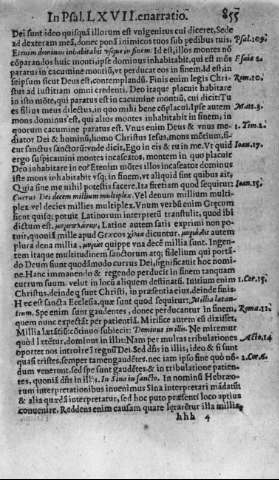 In Psal. LXVII. enarratio. 855
Dei sunt ideo quisq; illorum est vulgenius cui diceret, Sede
ad dexteram meā, donec ponā inimicos tuos sub pedibus tuis. Psal. 109.
Etenim dominus inhabitabit vsq; in finem. Id est, illos montes nō
cōparandos huic monti, ipse dominus inhabitabit, qui est mōs Esaiæ 2.
paratus in cacumine montiū, vt perducat eos in finem. Id est in
seipsum sicut Deus est, contemplandū. Finis enim legis Chri- Rom. 10.
stus ad iustitiam omni credenti. Deo itaque placuit habitare
in isto mōte, qui paratus est in cacumine montiū, cui dicit: Tu
es filius meus dilectus, in quo mihi bene cōplacui. Ipse autem Matt. 3.
mons dominus est, qui alios montes inhabitabit in finem, in
quorum cacumine paratus est. Vnus enim Deus & vnus me- 1. Tim. 2.
diator Dei & hominū, homo Christus Iesus, mons mōtium, si-
cut sanctus sanctorū: vnde dicit, Ego in eis & tu in me. Vt quid Ioan. 17.
ergo suspicamini montes incaseatos, montem in quo placuit
Deo inhabitare in eo? Etenim mōtes illos incaseatos dominus
iste mons inhabitabit vsq; in finem, vt aliquid sint quibus ait,
Quia sine me nihil potestis facere. Ita fit etiam quod sequitur: Ioan. 15.
Currus Dei decem millium multiplex. Vel denum millium multi-
plex. vel decies millies multiplex. Vnum verbū enim Grecum
sicut quisq; potuit Latinorum interpretū transtulit, quod ibi
dictum est, Latine autem satis exprimi non po-
tuit, quoniā mille apud Græcos dicuntur, autem
plura dena millia, quippe vna decē millia sunt. Ingen-
tem itaque multitudinem sanctorum atq; fidelium qui portā-
do Deum sunt quodāmodo currus Dei, significauit hoc nomi-
ne. Hanc immanendo & regendo perducit in finem tanquam
currum suum, velut in locū aliquem destinatū. Initium enim 1. Cor. 15.
Christus, deinde q; sunt Christi, in præsentia eius, deinde finis.
Hec est sancta Ecclesia, quæ sunt quod sequitur, Millia lætan-
tium. Spe enim sunt gaudentes, donec perducantur in finem, Roma. 12.
quem nunc expectāt per patientiā. Mirifice autem ei dixisset,
Millia lætātiū: cōtinuo subiecit: Dominus in illis. Ne miremur
quòd lætētur, dominus in illis: Nam per multas tribulationes Acto. 14
oportet nos introire ī regnū Dei. Sed dn̄s in illis, ideo & si sunt
quasi tristes, semper tamen gaudētes. nec iam ipso fine quò nō- 2. Cor. 6.
dum venerunt, sed spe sunt gaudētes & in tribulatione patien-
tes, quoniā dn̄s in illis, In Sina in sancto. In nominū Hebræo-
rum interpretationibus inuenimus Sina interpretari mādatū:
& alia quædā interpretatur, sed hoc puto præsenti loco aptius
conuenire. Reddens enim causam quare lætarētur illa millia,
hhh 4